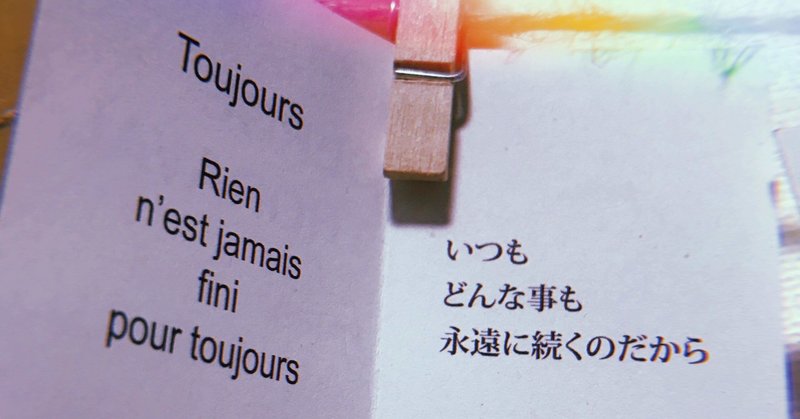 Toujours
Rien
n’est jamais
fini
pour toujours
いつも
どんな事も
永遠に続くのだから